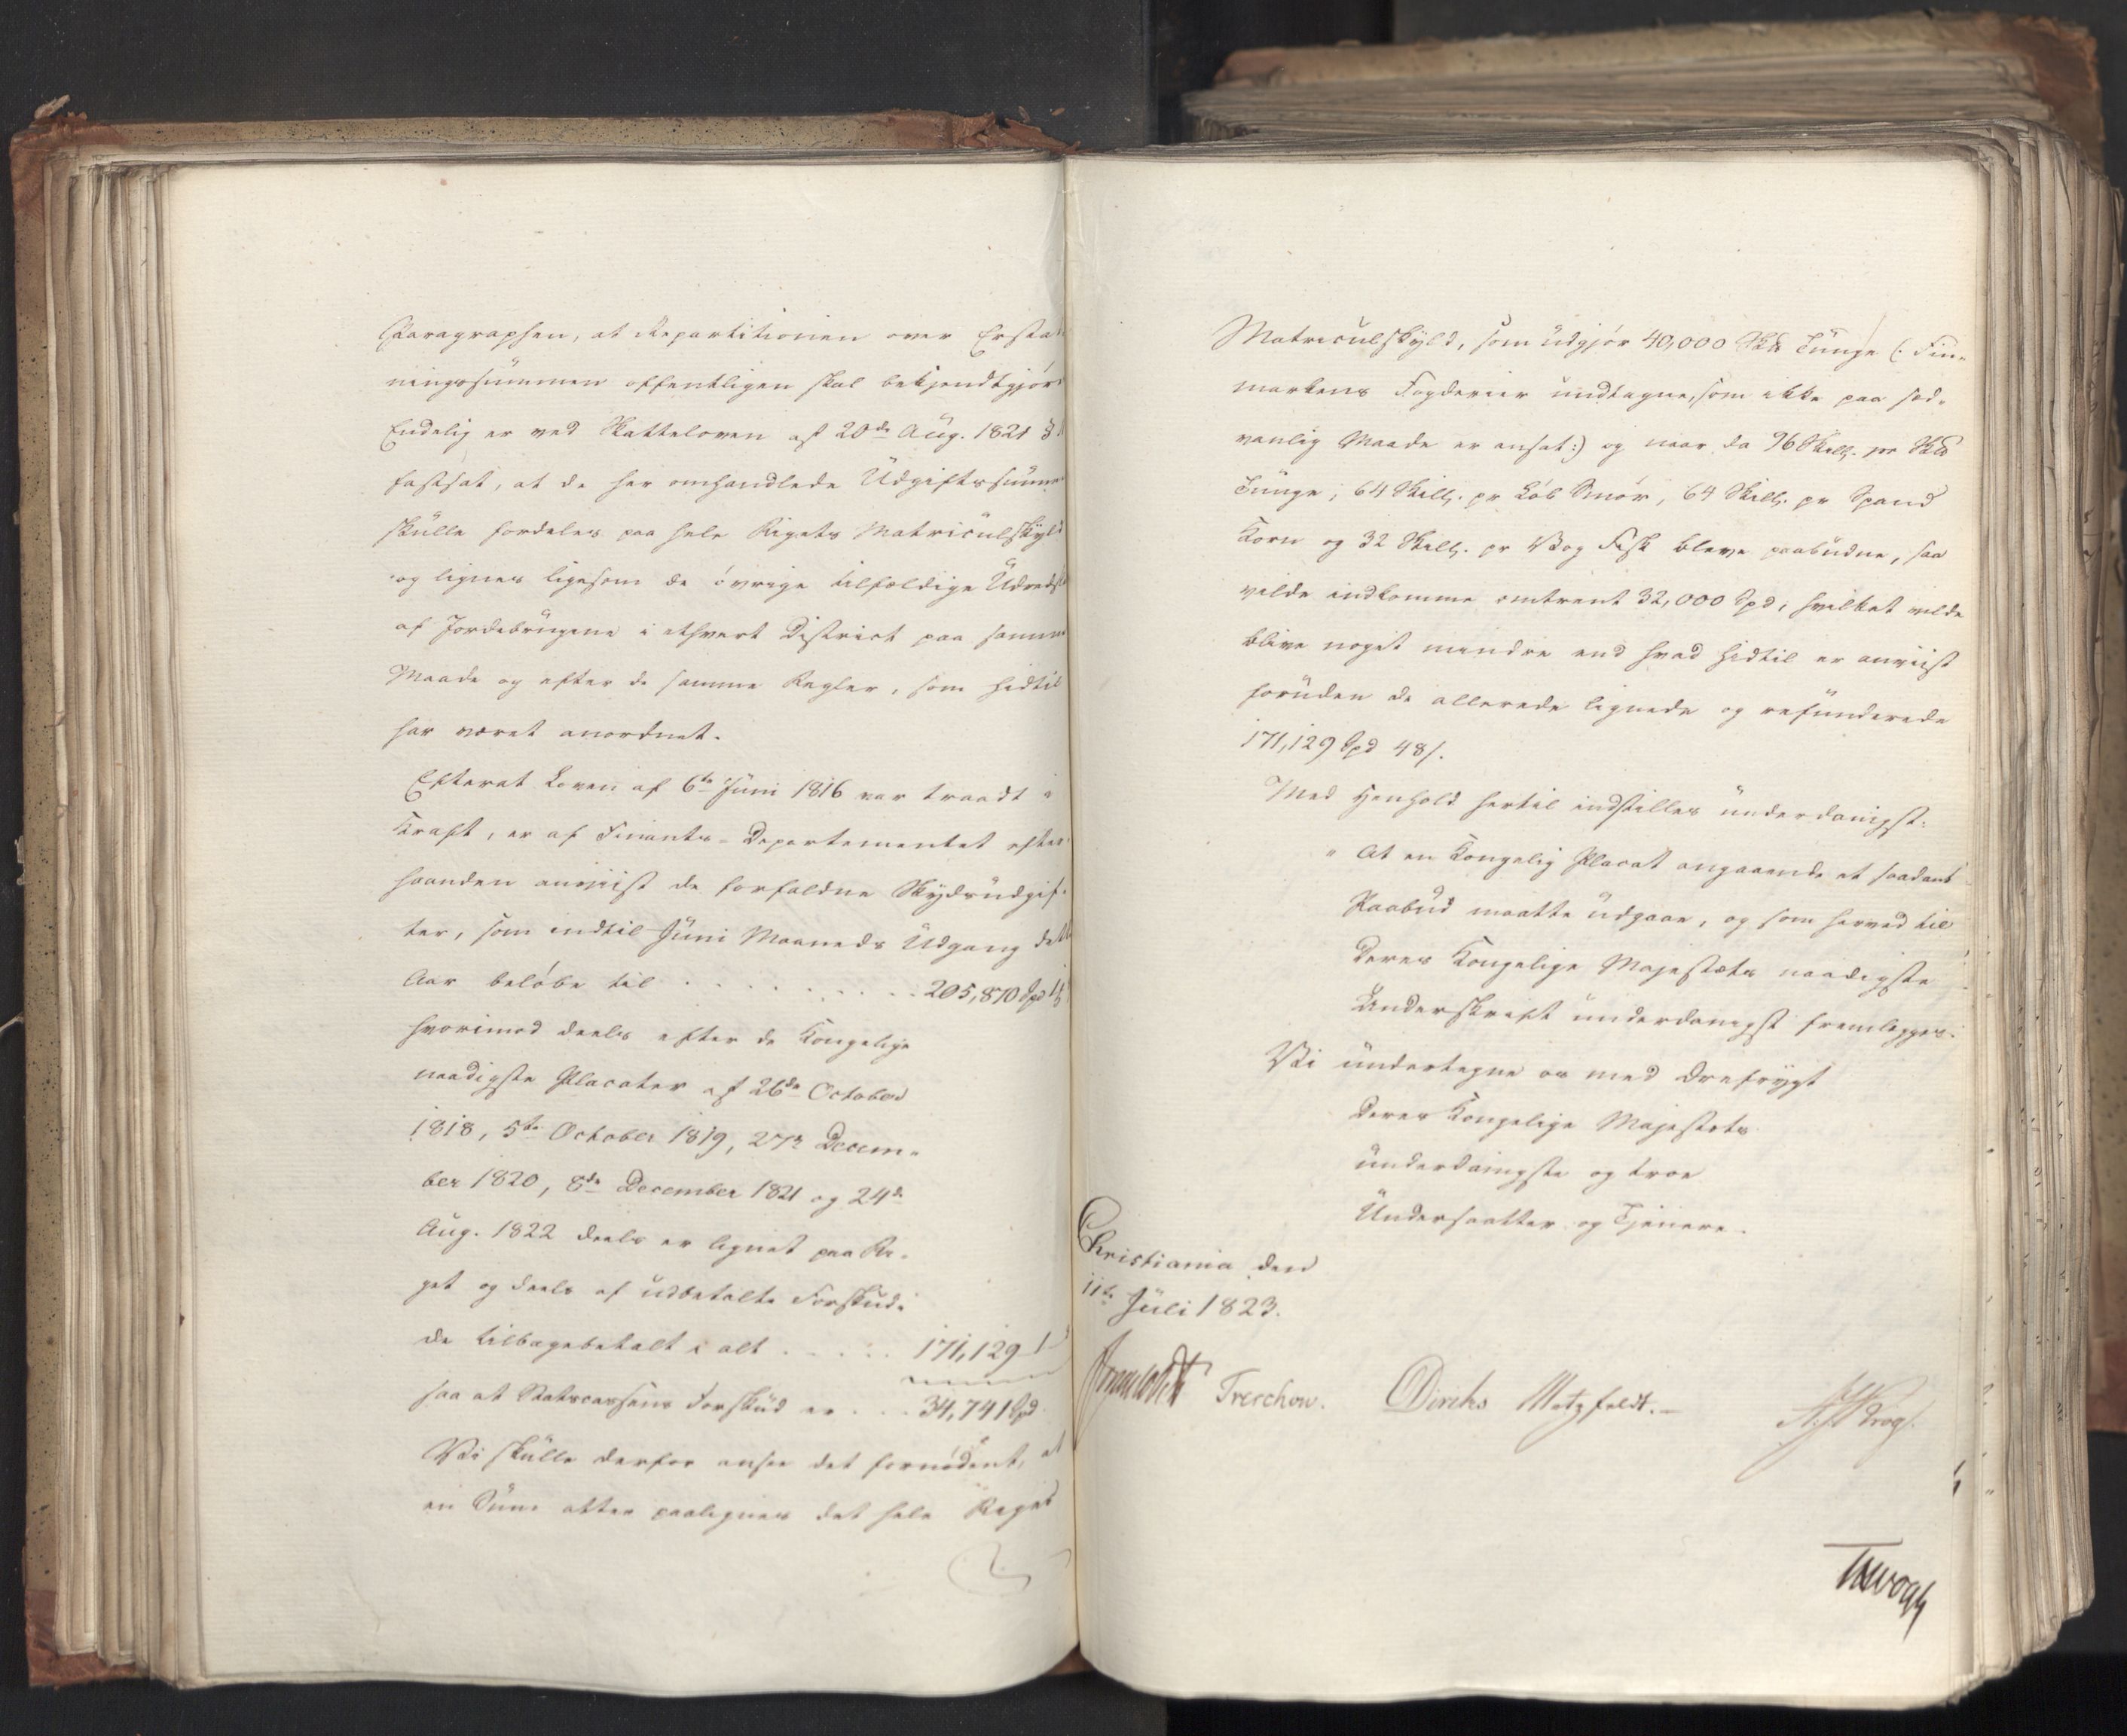 Paragraphen, at Repartitionen over Erstat
ningssummen offentligen skal bekjendtgjør
Endelig er ved Skatteloven af 20de Aug. 1821 §
fastsat, at de her omhandlede Udgiftssumme
skulle fordeles paa hele Rigets Matriculskyld
og lignes ligesom de øvrige tilfældige Udreds
af Jordebrugene i ethvert District paa samme
Maade og efter de samme Regler, som hidtil
har været anordnet.
Efterat Loven af 6te Juni 1816 var traadt i
Kraft, er af Finants-Departementet efter
haanden anviist de forfaldne Skydsudgif-
ter, som indtil Juni Maaneds Udgang dette
Aar beløbe til . . . . . . . . . 205,870 Spd
hvorimod deels efter de Kongelige
naadigste Placater af 26de October
1818, 5te October 1819, 27de Decem-
ber 1820, 8de December 1821 og 24de
Aug. 1822 deels er lignet paa Ri-
get og deels af udbetalte Forskud-
de tilbagebetalt i alt . . . . . 171,129
saa at Statscassens Forskud er . . . 34,741 Spd
Vi skulle derfor ansee det fornødent, at
en Sum atter paalignes det hele Riges
Matriculskyld, som udgjør 40,000 Skd Tunge (: Fin-
markens Fogderier undtagne, som ikke paa sæd-
vanlig Maade er ansat :) og naar da 96 Skill. pr Skd
Tunge, 64 Skill. pr Løb Smør, 64 Skill. pr Spand
Korn og 32 Skill. pr Vog Fisk bleve paabudne, saa
vilde indkomme omtrent 32,000 Spd, hvilket vilde
blive noget mindre end hvad hidtil er anviist
foruden de allerede lignede og refunderede
171,129 Spd 48 s.
Med Henhold hertil indstilles underdanigst:
" At en Kongelig Placat angaaende et saadant
Paabud maatte udgaae, og som herved til
Deres Kongelige Majestæts naadigste
Underskrift underdanigst fremlægges.
Vi undertegne os med Ærefrygt
Deres Kongelige Majestæts
underdanigste og troe
Undersaatter og Tjenere.
Christiania den
11te Juli 1823.
Treschow. Diriks Motzfeldt.